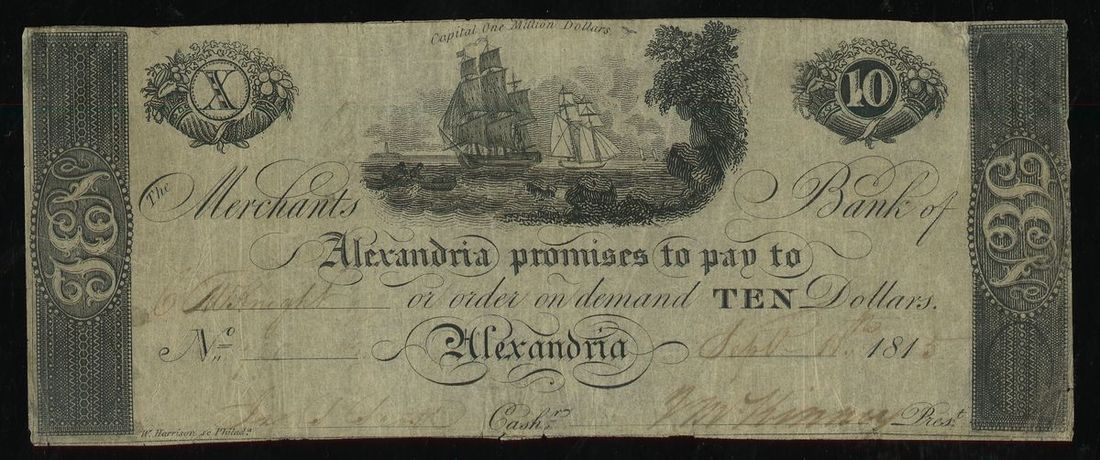 Capital One Million Dollars.
X
10
TEN
TEN
The Merchants Bank of
Alexandria promises to pay to
McKnight or order on demand TEN Dollars.
No.
Alexandria Sept 1815
Cashr. Prest.
W. Harrison sc Philada.